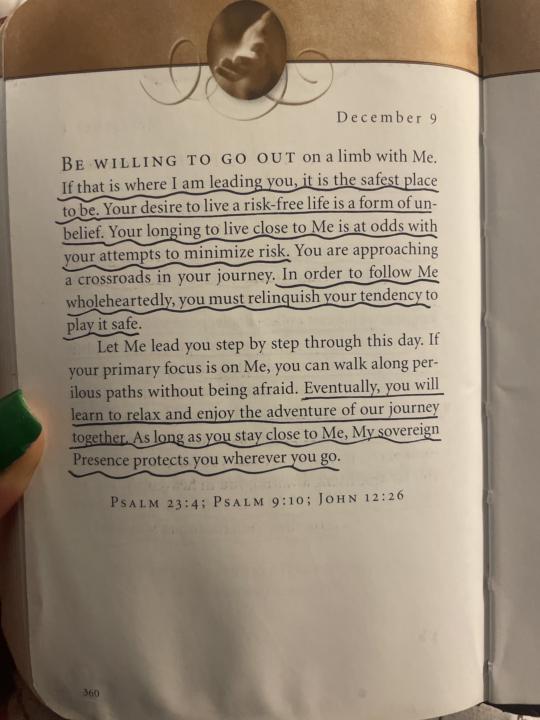 December 9
BE WILLING TO GO OUT on a limb with Me.
If that is where I am leading you, it is the safest place
to be. Your desire to live a risk-free life is a form of un-
belief. Your longing to live close to Me is at odds with
your attempts to minimize risk. You are approaching
a crossroads in your journey. In order to follow Me
wholeheartedly, you must relinquish your tendency to
play it safe.
Let Me lead you step by step through this day. If
your primary focus is on Me, you can walk along per-
ilous paths without being afraid. Eventually, you will
learn to relax and enjoy the adventure of our journey
together. As long as you stay close to Me, My sovereign
Presence protects you wherever you go.
PSALM 23:4; PSALM 9:10; JOHN 12:26
360